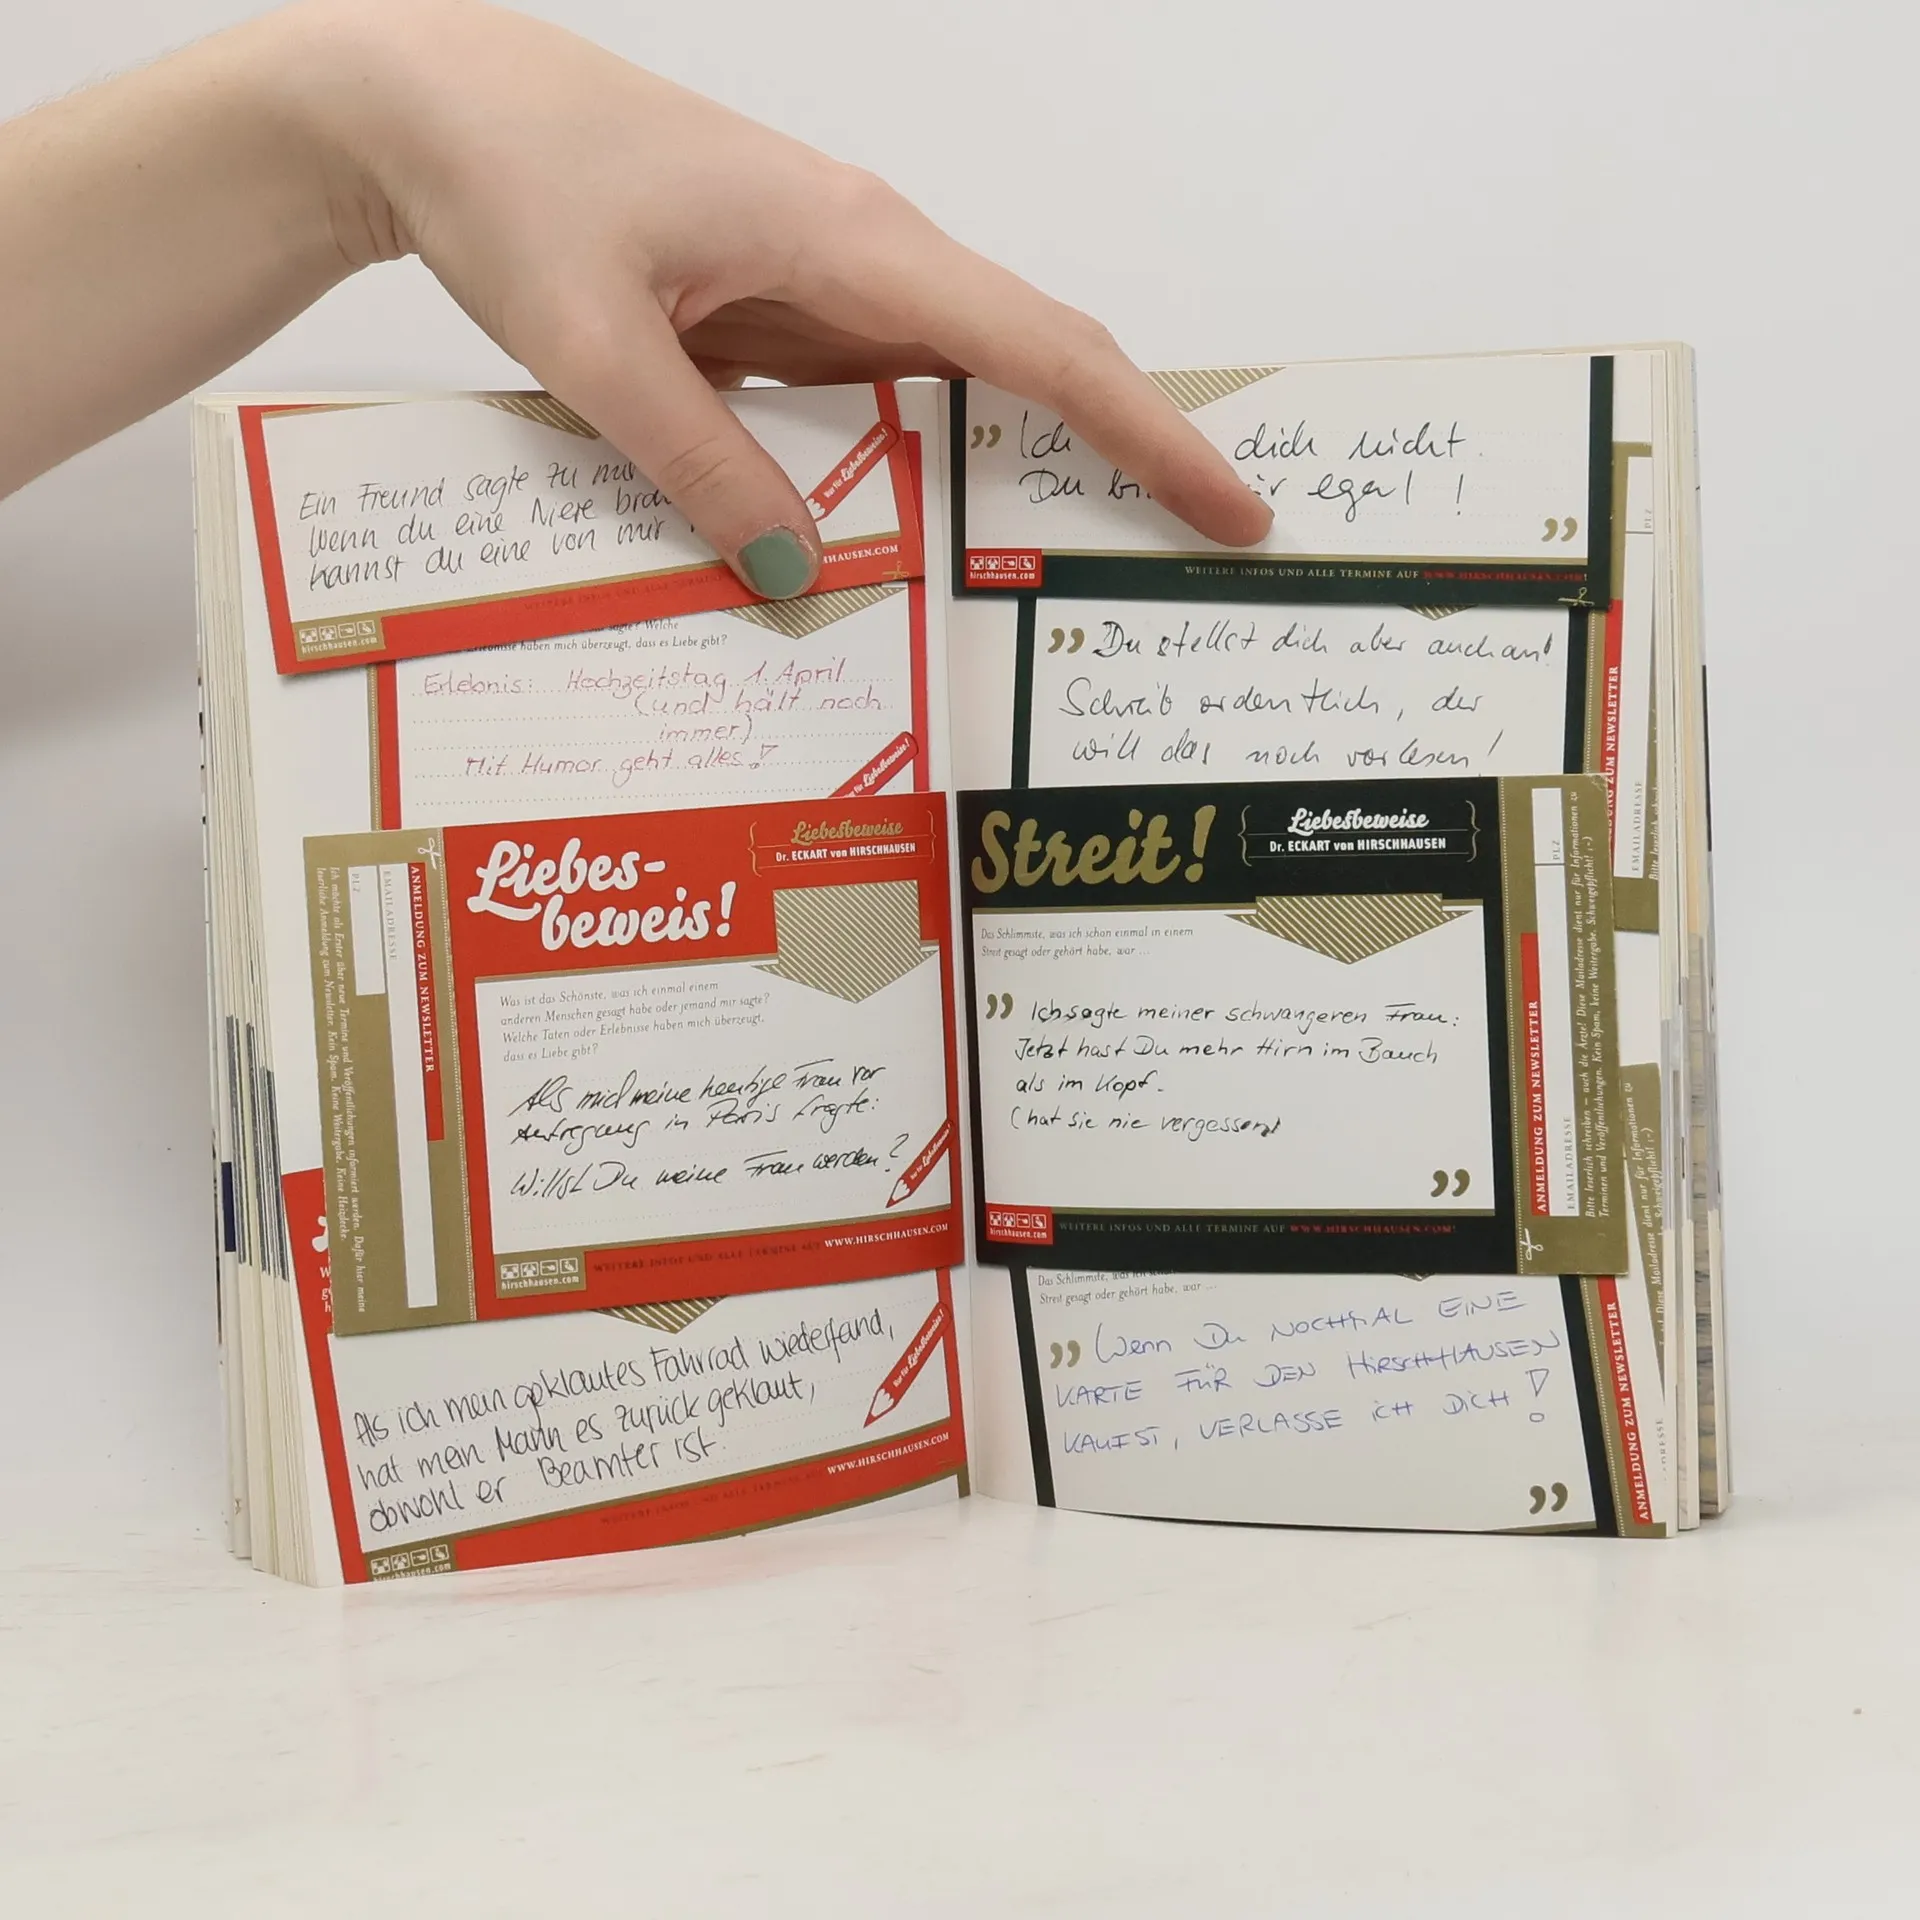 Ein Freund sagte zu mir
wenn du eine Niere
kannst du eine von mir
HHAUSEN.COM
hirschhausen.com
Nur für Liebesbeweise!
sagte? Welche
haben mich überzeugt, dass es Liebe gibt?
Erlebnis: Hochzeitstag 1. April
(und hält noch
immer)
Mit Humor geht alles!
Liebesbeweise!
Liebes-
beweis!
Liebesbeweise
Dr. ECKART von HIRSCHHAUSEN
Was ist das Schönste, was ich einmal einem
anderen Menschen gesagt habe oder jemand mir sagte?
Welche Taten oder Erlebnisse haben mich überzeugt,
dass es Liebe gibt?
Als mich meine heutige Frau vor
Aufregung in Paris fragte:
Willst Du meine Frau werden?
Nur für Liebesbeweise!
WEITERE INFOS UND ALLE TERMINE AUF WWW.HIRSCHHAUSEN.COM
hirschhausen.com
ANMELDUNG ZUM NEWSLETTER
EMAILADRESSE
PLZ
Ich möchte als Erster über neue Termine und Veröffentlichungen informiert werden. Dafür hier meine
leserliche Anmeldung zum Newsletter. Kein Spam. Keine Weitergabe. Keine Heizdecke.
Als ich mein geklautes Fahrrad wiederfand,
hat mein Mann es zurück geklaut,
obwohl er Beamter ist.
Nur für Liebesbeweise!
WEITERE INFOS UND ALLE TERMINE AUF WWW.HIRSCHHAUSEN.COM
hirschhausen.com
" Ich dich nicht.
Du egal! "
hirschhausen.com
WEITERE INFOS UND ALLE TERMINE AUF WWW.HIRSCHHAUSEN.COM!
PLZ
" Du stellst dich aber auch an!
Schreib ordentlich, der
will das noch vorlesen!
ZUM NEWSLETTER
EMAILADRESSE
Streit!
Liebesbeweise
Dr. ECKART von HIRSCHHAUSEN
Das Schlimmste, was ich schon einmal in einem
Streit gesagt oder gehört habe, war ...
" Ich sagte meiner schwangeren Frau:
Jetzt hast Du mehr Hirn im Bauch
als im Kopf.
(hat sie nie vergessen) "
hirschhausen.com
WEITERE INFOS UND ALLE TERMINE AUF WWW.HIRSCHHAUSEN.COM!
ANMELDUNG ZUM NEWSLETTER
EMAILADRESSE
PLZ
Bitte leserlich schreiben – auch die Ärzte! Diese Mailadresse dient nur für Informationen zu
Terminen und Veröffentlichungen. Kein Spam, keine Weitergabe. Schweigepflicht! ;-)
Das Schlimmste, was ich
Streit gesagt oder gehört habe, war ...
" Wenn Du NOCHMAL EINE
KARTE FÜR DEN HIRSCHHAUSEN
KAUFST, VERLASSE ICH DICH! "
ANMELDUNG ZUM NEWSLETTER